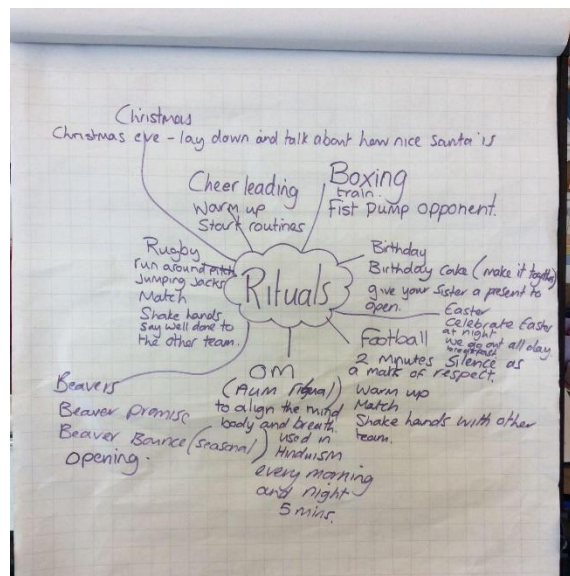 Christmas
Christmas eve - lay down and talk about how nice Santa is
Cheerleading
Warm up
Start routines
Boxing
train.
Fist Pump opponent.
Rugby
run around pitch
Jumping Jacks
Match
Shake hands
say well done to
the other team.
Rituals
Birthday
Birthday Cake (make it together)
give your sister a present to
open.
Easter
Celebrate Easter
at night
we go out all day
breakfast
Football
2 minutes silence as
a mark of respect.
Warm up
Match
Shake hands with other
team.
OM
(Aum ritual)
to align the mind
body and breath.
used in
Hinduism
every morning
and night
5 mins.
Beavers
Beaver Promise
Beaver Bounce (seasonal)
opening.